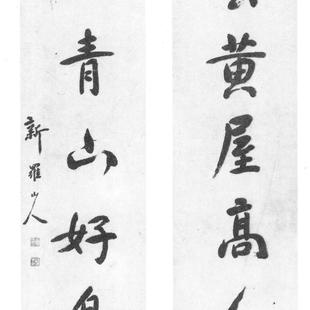 黄屋高
青山好
新羅山人